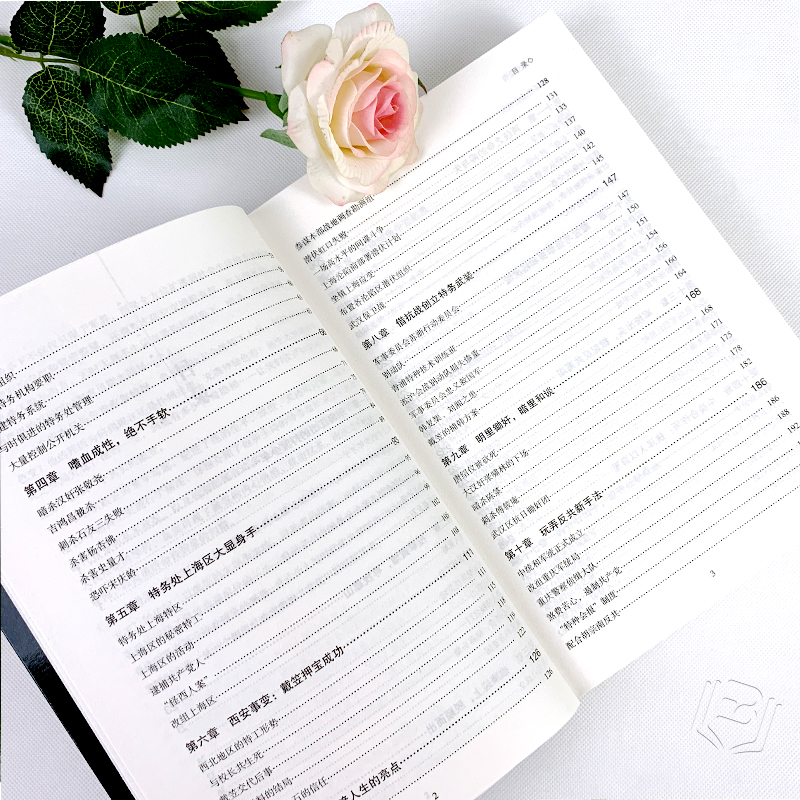 组织
特务机构要职
建特务系统
与时俱进的特务处管理
大量控制公开机关
第四章 嗜血成性，绝不手软
暗杀汉奸张敬尧
吉鸿昌被杀
刺杀石友三失败
杀害杨杏佛
杀害史量才
恐吓宋庆龄
第五章 特务处上海区大显身手
特务处上海特区
上海区的秘密特工 111
上海区的活动 113
逮捕共产党人
“怪西人案” 119
改组上海区 122
第六章 西安事变：戴笠押宝成功 126
西北地区的特工形势 126
与校长共生死
戴笠交代后事
2
目录
参谋本部战地调查勘测组 128
潜伏虹口失败 131
一场高水平的间谍斗争 133
上海沦陷前部署潜伏计划 137
坐镇上海应变 140
布置各沦陷区潜伏组织 142
武汉保卫战 145
第八章 借抗战创立特务武装 147
军事委员会苏浙行动委员会 147
别动队 150
青浦特种技术训练班 151
淞沪会战别动队损失惨重 154
军事委员会忠义救国军 156
韩复榘、刘湘之患 160
戴笠的捕韩方案 164
第九章 明里锄奸，暗里和谈 168
唐绍仪被砍死 168
大汉奸张啸林的下场 171
暗杀陈箓 175
刺杀傅筱庵 178
武汉区抗日锄奸团 182
第十章 玩弄反共新手法 186
中统和军统正式成立 186
改组重庆军统局 188
重庆警察侦缉大队 192
煞费苦心，遏制共产党
“特种会报”制度
配合胡宗南反共
3